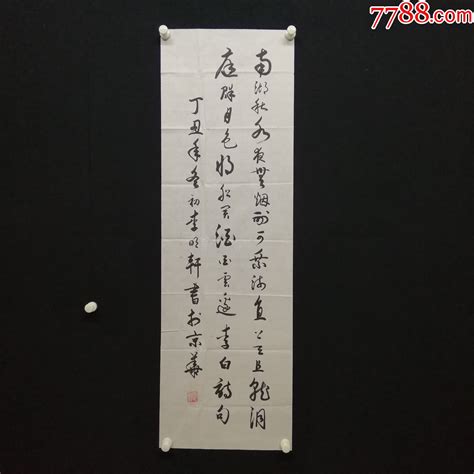 7788.com
南湖秋水夜無烟耐可乘流直上天且就洞
庭賒月色將船買酒白雲邊李白詩句
丁丑年冬初李明軒書於京華